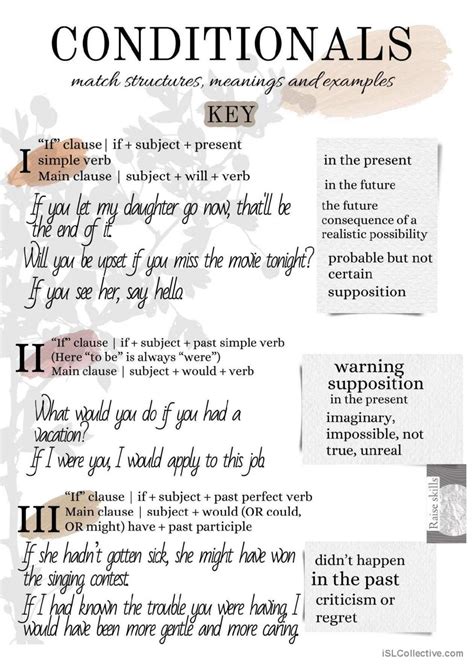 CONDITIONALS
match structures, meanings and examples
KEY
I
"If" clause| if + subject + present
simple verb
Main clause | subject + will + verb
If you let my daughter go now, that'll be
the end of it.
Will you be upset if you miss the movie tonight?
If you see her, say hello.
in the present
in the future
the future
consequence of a
realistic possibility
probable but not
certain
supposition
II
"If" clause | if + subject + past simple verb
(Here "to be" is always "were")
Main clause | subject + would + verb
What would you do if you had a
vacation?
If I were you, I would apply to this job.
warning
supposition
in the present
imaginary,
impossible, not
true, unreal
Raise skills
III
"If" clause | if + subject + past perfect verb
Main clause | subject + would (OR could,
OR might) have + past participle
If she hadn't gotten sick, she might have won
the singing contest.
If I had known the trouble you were having, I
would have been more gentle and more caring.
didn't happen
in the past
criticism or
regret
iSLCollective.com